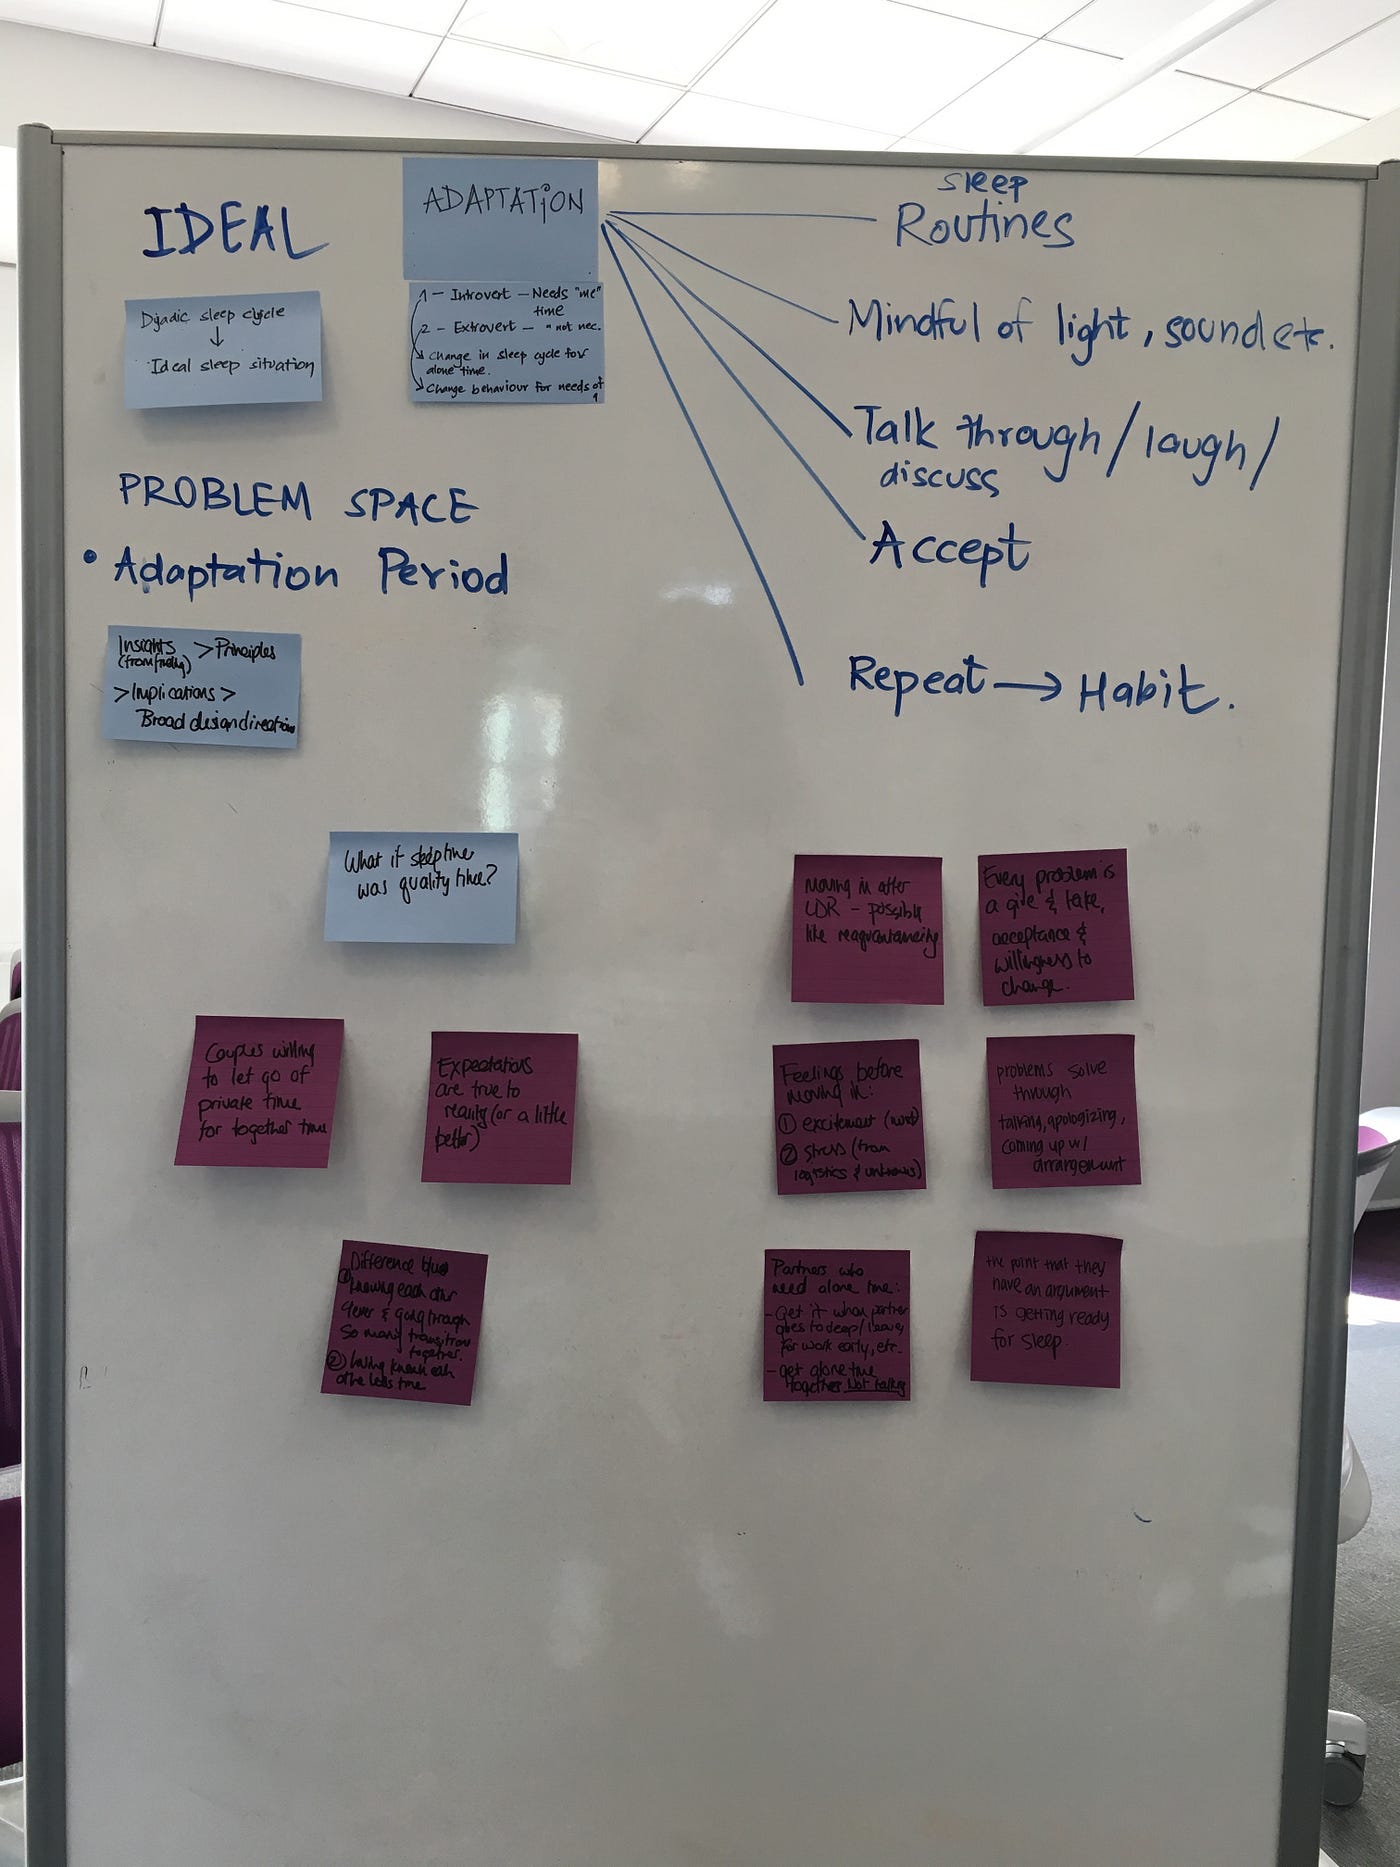 IDEAL
ADAPTATION
Dyadic sleep cycle
↓
Ideal sleep situation
1 - Introvert - Needs "me"
time
2 - Extrovert - " not nec.
Change in sleep cycle for
alone time.
Change behaviour for needs of
1
sleep
Routines
Mindful of light, sound etc.
Talk through / laugh /
discuss
Accept
Repeat → Habit.
PROBLEM SPACE
• Adaptation Period
Insights > Principles
(from finding)
> Implications >
Broad design direction
What if sleep time
was quality time?
Couples willing
to let go of
private time
for together time
Expectations
are true to
reality (or a little
better)
Difference b/w
① knowing each other
4ever & going through
so many transition
together.
② having known each
other less time
Moving in after
LDR - possibly
like
Every problem is
a give & take,
acceptance &
willingness to
change.
Feelings before
moving in:
① excitement (most)
② stress (from
logistics & unknowns)
problems solve
through
talking, apologizing,
coming up w/
arrangement
Partners who
need alone time:
- Get it when partner
goes to sleep / leaves
for work early, etc.
- get alone time
together NOT talking
the point that they
have an argument
is getting ready
for sleep.